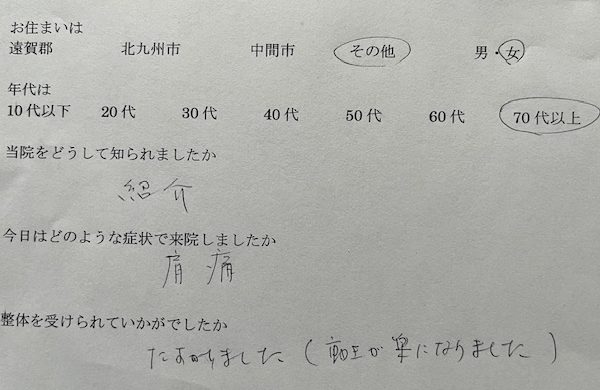 お住まいは
遠賀郡 北九州市 中間市 その他 男・女
年代は
10代以下 20代 30代 40代 50代 60代 70代以上
当院をどうして知られましたか
紹介
今日はどのような症状で来院しましたか
肩痛
整体を受けられていかがでしたか
たすかりました(動土が楽になりました)